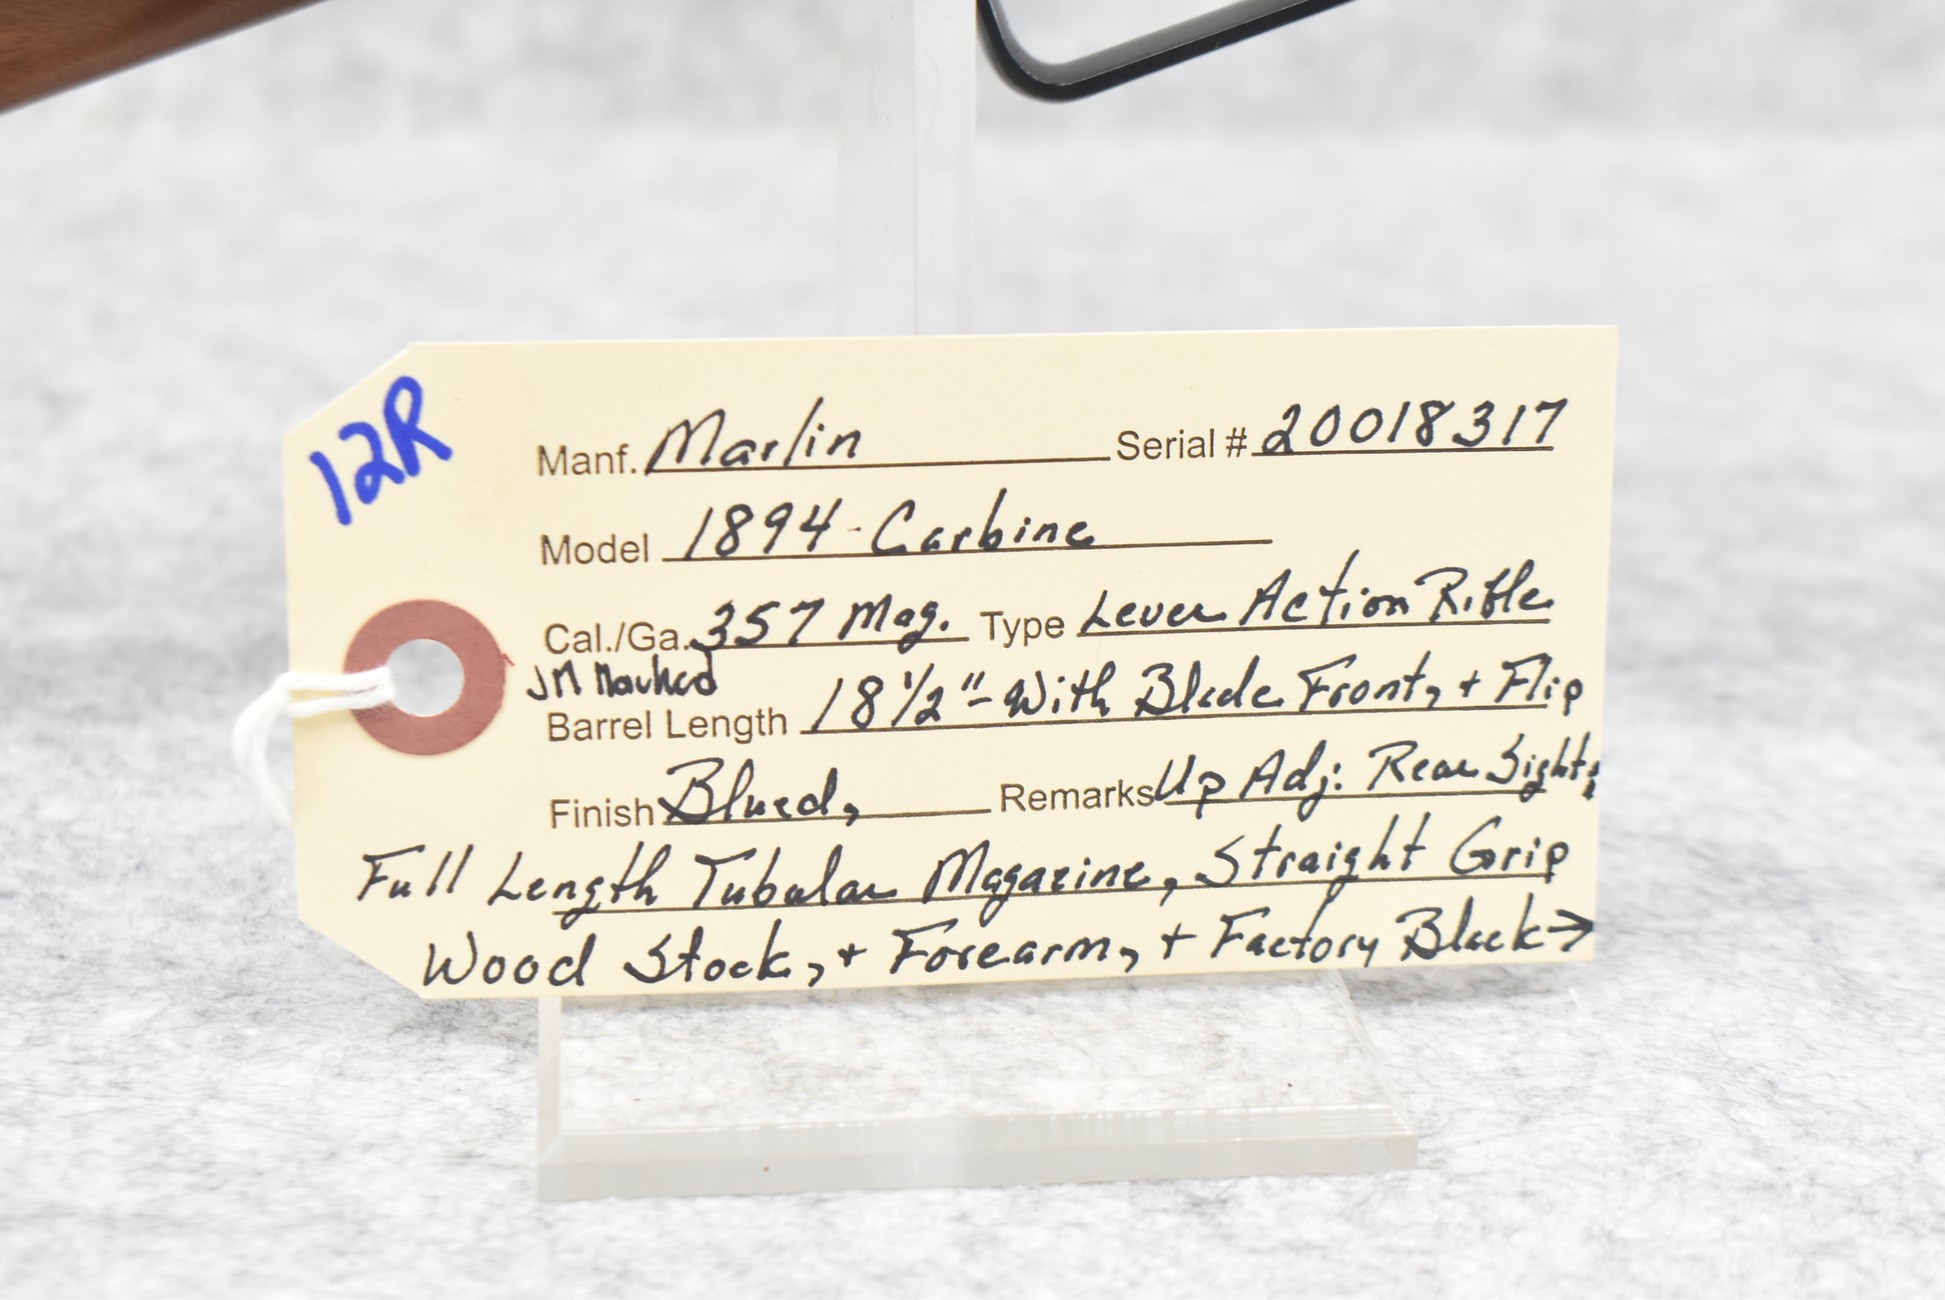 12R
Manf. Marlin Serial # 20018317
Model 1894-Carbine
Cal./Ga. 357 Mag. Type Lever Action Rifle
JM Marked
Barrel Length 18 1/2"-With Blade Front, + Flip
Finish Blued, Remarks Up Adj: Rear Sight;
Full Length Tubular Magazine, Straight Grip
Wood Stock, + Forearm, + Factory Black→